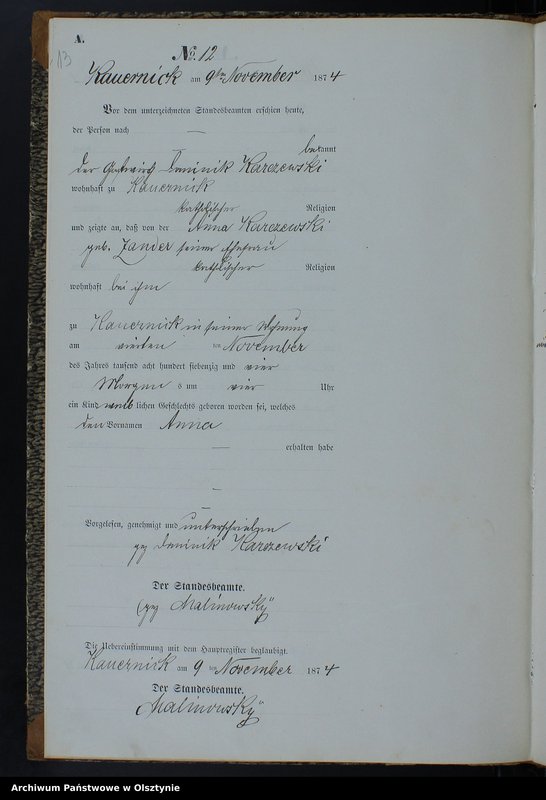 A.
13
No. 12
Kauernick am 9ten November 1874
Vor dem unterzeichneten Standesbeamten erschien heute,
der Person nach —
bekannt
der Gastwirth Dominik Karczewski
wohnhaft zu Kauernick
katholischer Religion
und zeigte an, daß von der Anna Karczewski
geb. Zander seiner Ehefrau
katholischer Religion
wohnhaft bei ihm
zu Kauernick in seiner Wohnung
am vierten ten November
des Jahres tausend acht hundert siebenzig und vier
Morgens um vier Uhr
ein Kind weiblichen Geschlechts geboren worden sei, welches
den Vornamen Anna
— erhalten habe
Vorgelesen, genehmigt und unterschrieben
gez Dominik Karczewski
Der Standesbeamte.
gez Malinowsky
Die Uebereinstimmung mit dem Hauptregister beglaubigt.
Kauernick am 9ten November 1874
Der Standesbeamte.
Malinowsky
Archiwum Państwowe w Olsztynie